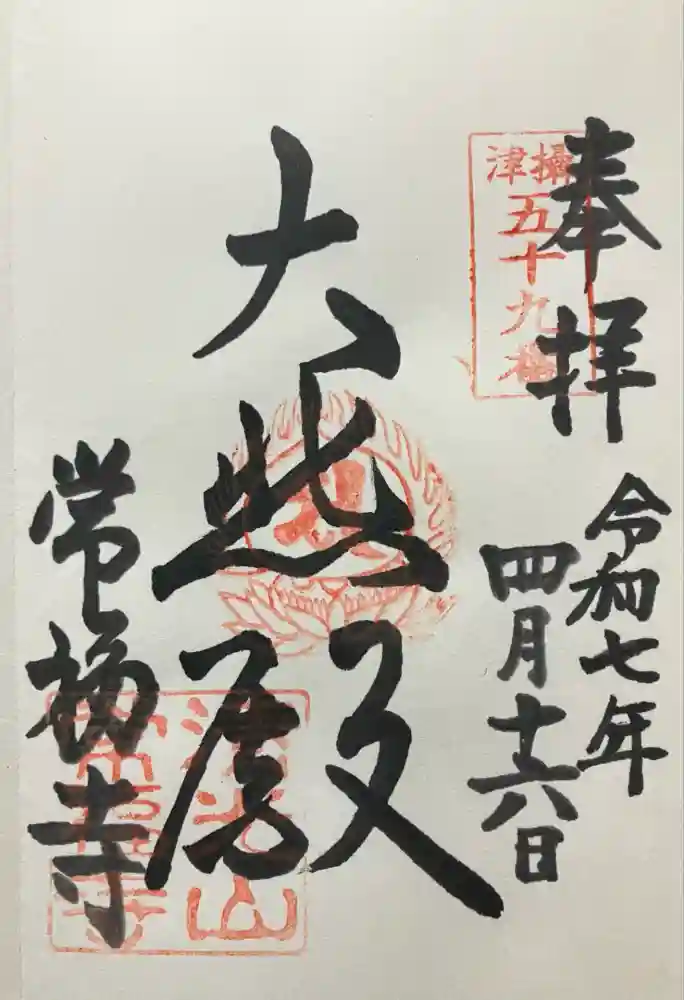 奉拝
攝津
五十九番
令和七年
四月十六日
大悲殿
常福寺
山
常福寺